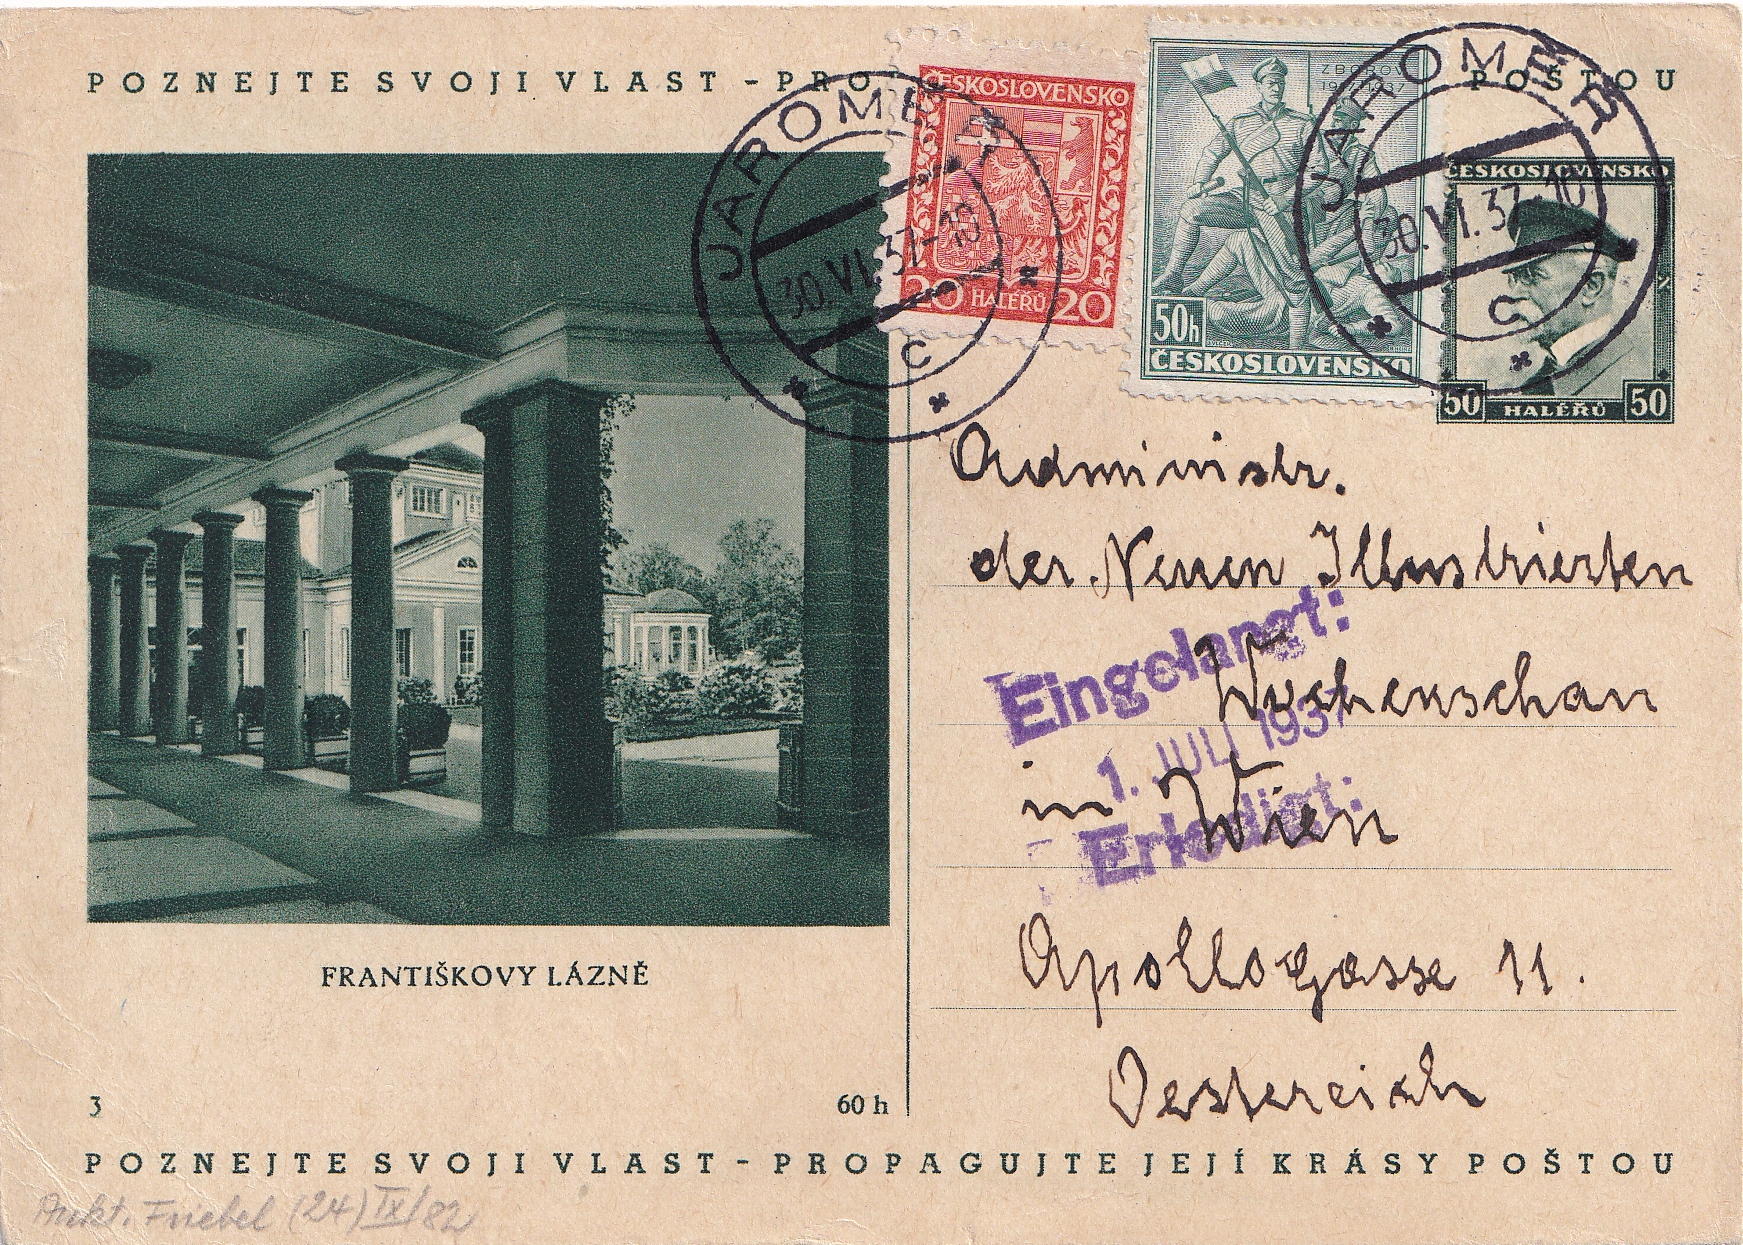 POZNEJTE SVOJI VLAST - PRO POŠTOU
ČESKOSLOVENSKO
20 HALÉŘŮ 20
ZBOROV
1917-1937
50h
ČESKOSLOVENSKO
ČESKOSLOVENSKO
50 HALÉŘŮ 50
JAROMĚŘ
30.VI.37-10
C
JAROMĚŘ
30.VI.37-10
C
Administr.
der Neuen Illustrierten
Wochenschau
in Wien
Apollogasse 11.
Oestereich
Eingelangt:
1. JULI 1937
Erledigt:
FRANTIŠKOVY LÁZNĚ
3
60 h
POZNEJTE SVOJI VLAST - PROPAGUJTE JEJÍ KRÁSY POŠTOU
Aukt. Friebel (24) IX/82